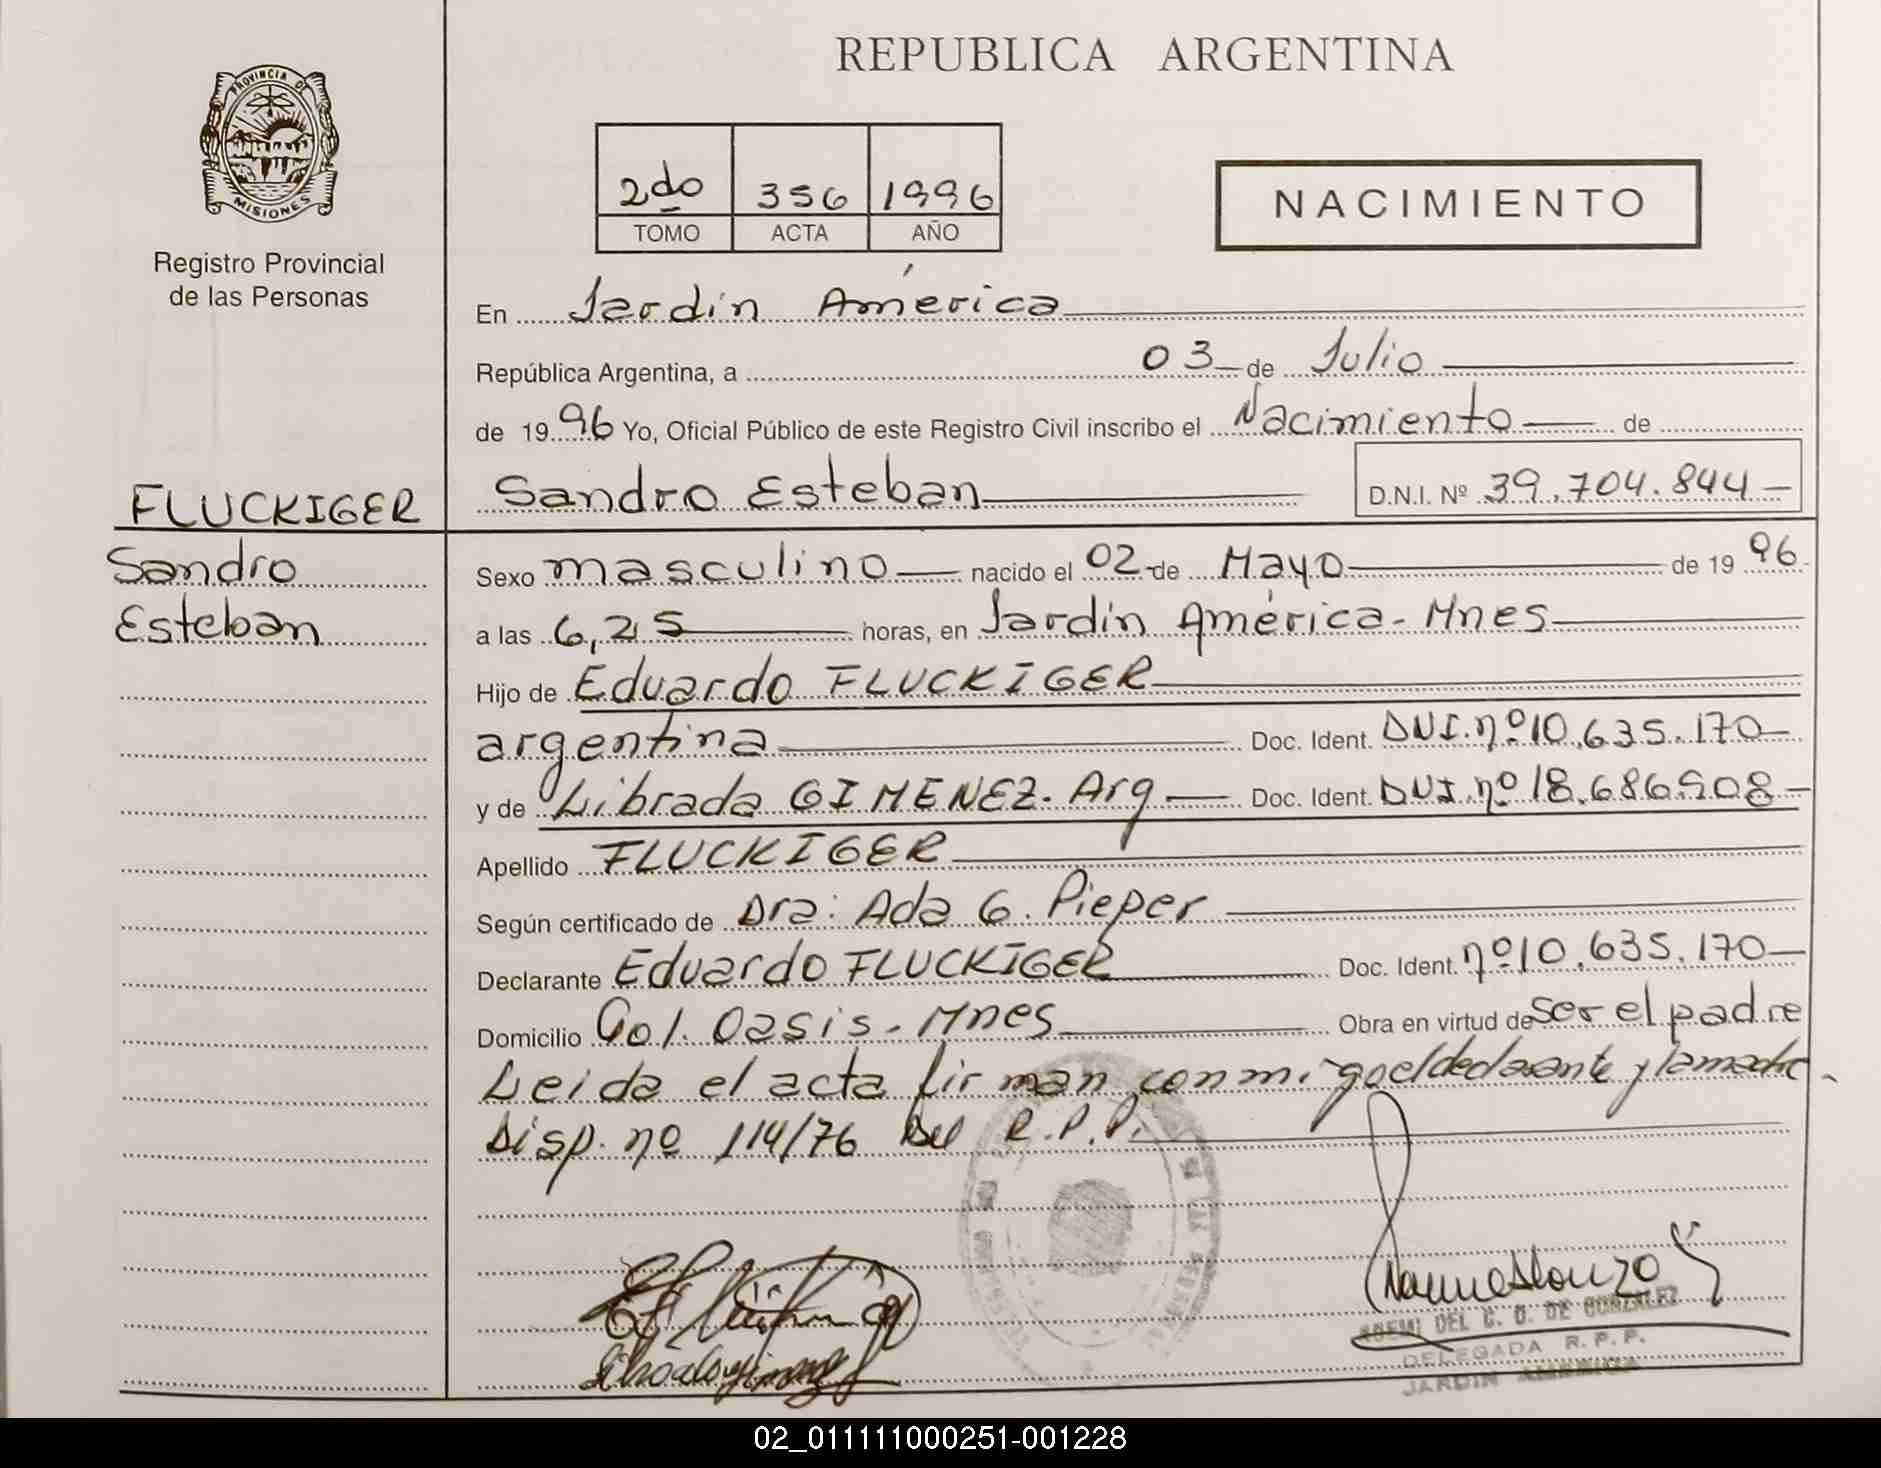 REPUBLICA ARGENTINA
PROVINCIA DE
MISIONES
Registro Provincial
de las Personas
2do 356 1996
TOMO ACTA AÑO
NACIMIENTO
En Jardín América
República Argentina, a 03 de Julio
de 1996 Yo, Oficial Público de este Registro Civil inscribo el Nacimiento de
FLUCKIGER
Sandro
Esteban
Sandro Esteban D.N.I. Nº 39.704.844
Sexo masculino nacido el 02 de Mayo de 1996
a las 6,25 horas, en Jardín América - Mnes
Hijo de Eduardo FLUCKIGER
argentina Doc. Ident. DNI. nº 10.635.170
y de Librada GIMENEZ. Arg Doc. Ident. DNI. nº 18.686.908
Apellido FLUCKIGER
Según certificado de Dra: Ada G. Pieper
Declarante Eduardo FLUCKIGER Doc. Ident. nº 10.635.170
Domicilio Col. Oasis - Mnes Obra en virtud de ser el padre
Leida el acta firman conmigo el declarante y la madre.
Disp. nº 114/76 del R.P.P.
DEL C. O. DE GONZALEZ
DELEGADA R. P. P.
JARDIN AMERICA
02_011111000251-001228